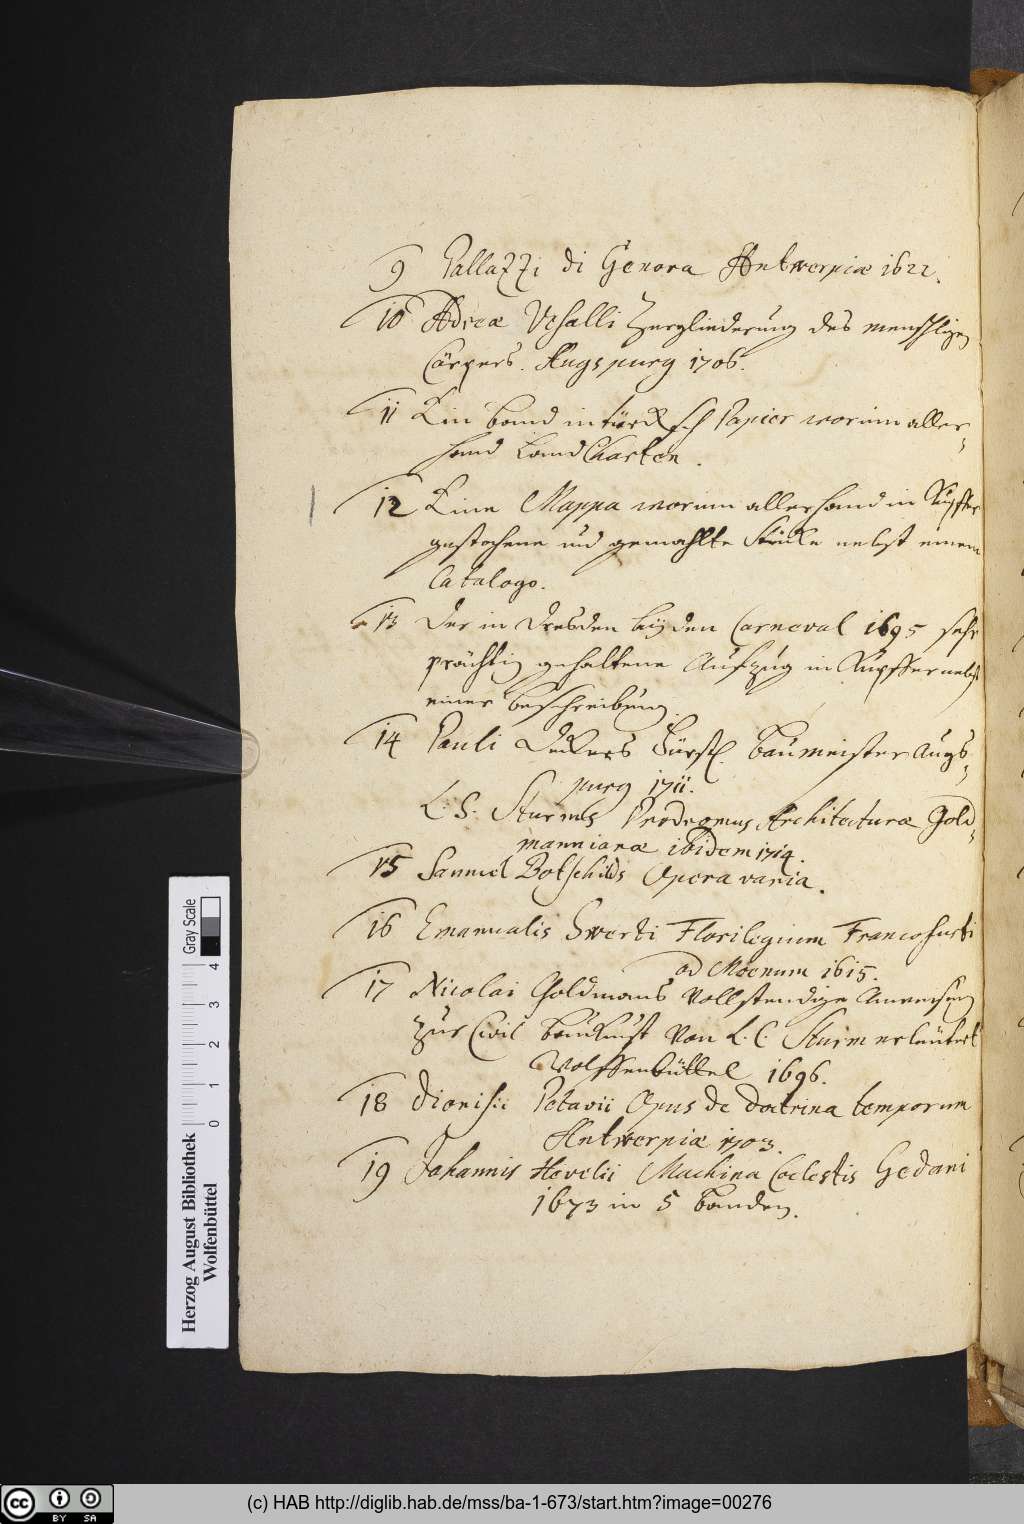 9 Pallazzi di Genova Antwerpiæ 1622.
10 Adreæ Vesalli Zergliederung des menschligen
Cörpers. Augspurg 1706.
11 Ein band in türcksch Papier worinn aller-
hand LandCharten.
12 Eine Mappa worinn allerhand in Kupffer
gestochene und gemahlte Stücke nebst einem
Catalogo.
13 Der in Dresden bey den Carneval 1695 sehr
prächtig gehaltene Aufzug in Kupffer nebst
einer beschreibung.
14 Pauli Deckers Fürstl. baumeister Augs-
purg 1711.
L. C. Sturms Prodromus Architecturæ Gold-
mannianæ ibidem 1714.
15 Samuel Botschilds Opera varia.
16 Emanualis Swerti Florilegium Francofurti
ad Moenum 1615.
17 Nicolai Goldmans Vollstendige Anweisung
zur Civil baukunst von L. C. Sturm erleutert
Wolffenbüttel 1696.
18 Dionisii Petavii Opus de doctrina temporum
Antwerpiæ 1703.
19 Johannis Hevelii Machina Coelestis Gedani
1673 in 5 banden.
Gray Scale
0 1 2 3 4
Herzog August Bibliothek
Wolfenbüttel
cc BY SA
(c) HAB http://diglib.hab.de/mss/ba-1-673/start.htm?image=00276